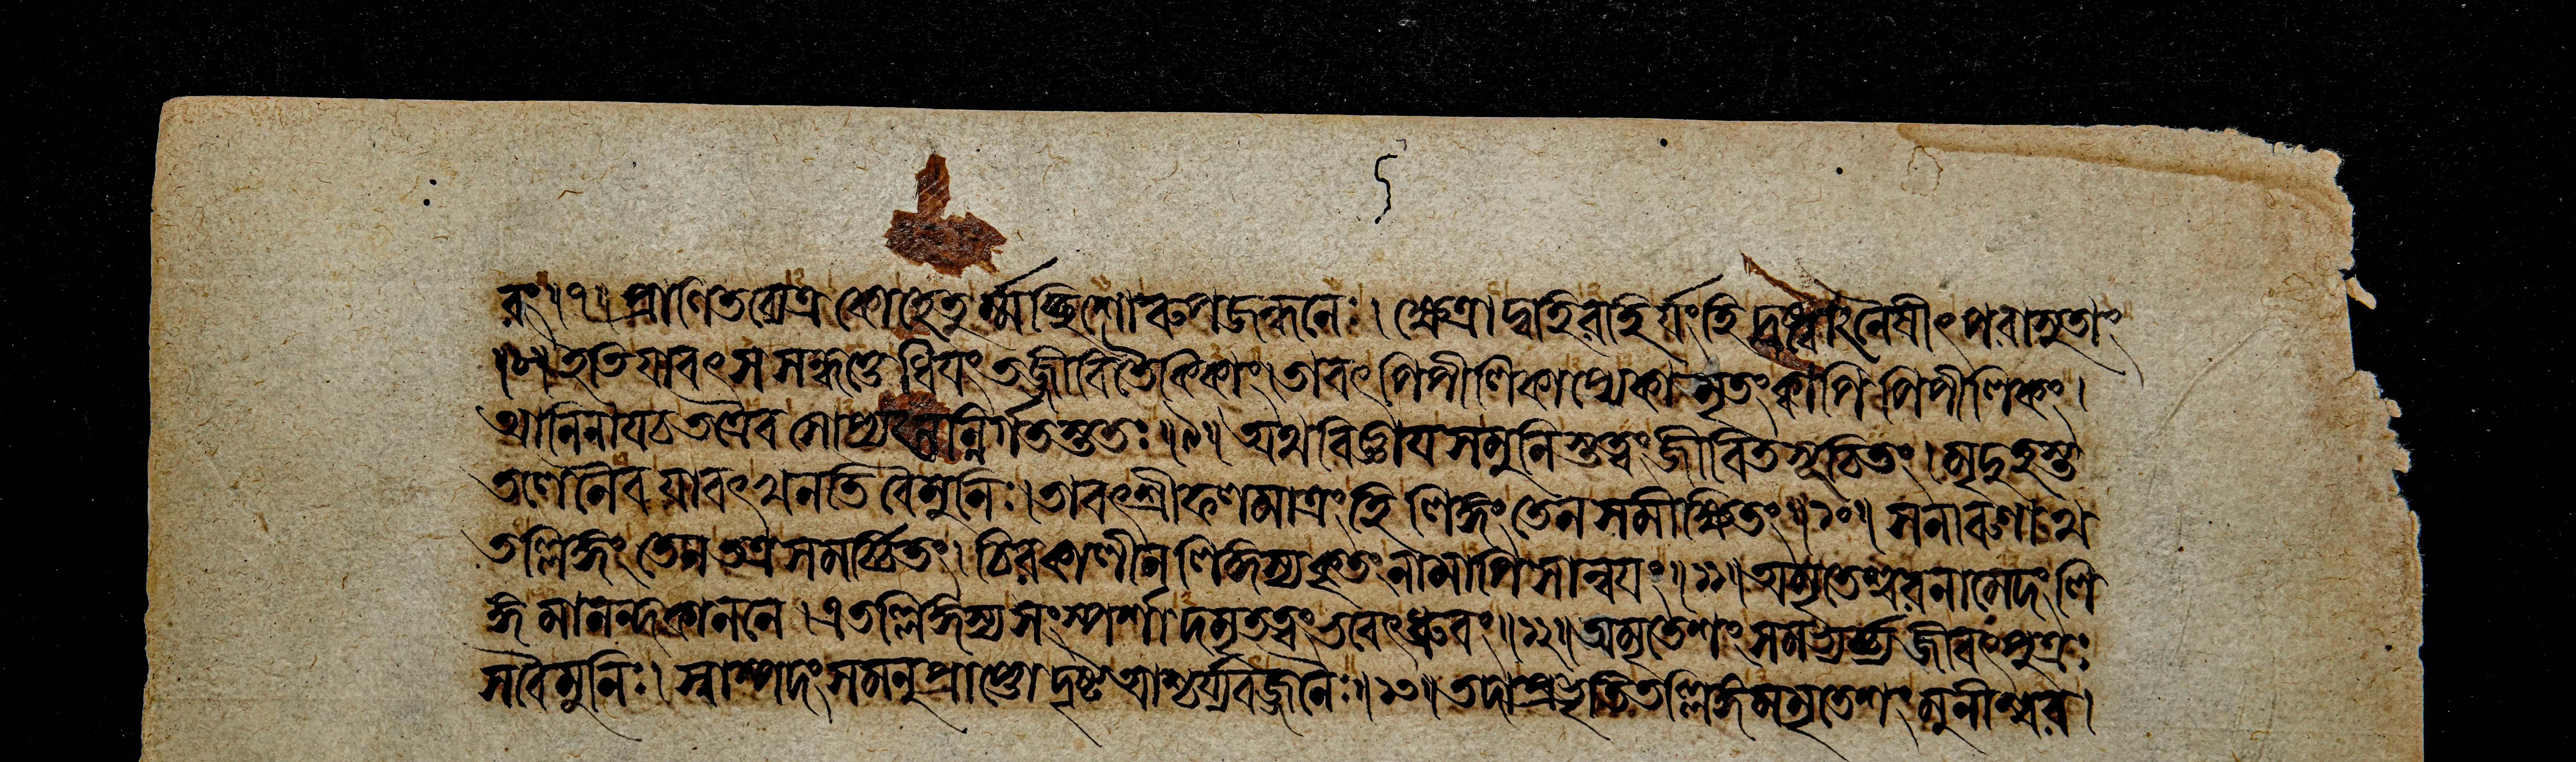 রং॥৭॥প্রাণিতব্যেত্র কোহেতুর্ম্মচ্ছিশোৰুপজঙ্ঘনেঃ। ক্ষেত্রাদ্বহিরহির্যংহি দষ্ট্বানৈষীৎপরাসুতাং
॥৮॥ইতিযাবৎ স সন্ধত্তে ধিয়ং তজ্জীবিতৈককাং। তাবৎ পিপীলিকাপ্যেকা মৃতংক্বাপি পিপীলিকং।
আনিনায়চ তত্রৈব সোপ্যনন্নির্গতস্ততঃ॥৯॥ অথ বিজ্ঞায় সমুনিস্তত্ত্বং জীবিতসূচিতং। মৃদুহস্ত
তলেনৈব যাবৎখনতি বৈমুনিঃ। তাবৎশ্রীফলমাত্রং হি লিঙ্গং তেন সমীক্ষিতং॥১০॥ সনাবশাথ
তল্লিঙ্গং তেন তত্র সমর্চ্চিতং। চিরকালীন লিঙ্গস্য কৃতং নামাপি সান্বয়ং॥১১॥ অমৃতেশ্বরনামেদং লি
ঙ্গমানন্দকাননে। এতল্লিঙ্গস্য সংস্পর্শাদমৃতত্বং ভবেৎধ্রুবং॥১২॥ অমৃতেশং সমভ্যর্চ্চ্য জীবৎপুত্রঃ
সবৈমুনিঃ। স্বাস্পদং সমনুপ্রাপ্তো দৃষ্ট আশ্চর্য্যবজ্জনৈঃ॥১৩॥ তদাপ্রভৃতিতল্লিঙ্গমমৃতেশং মুনীশ্বর।